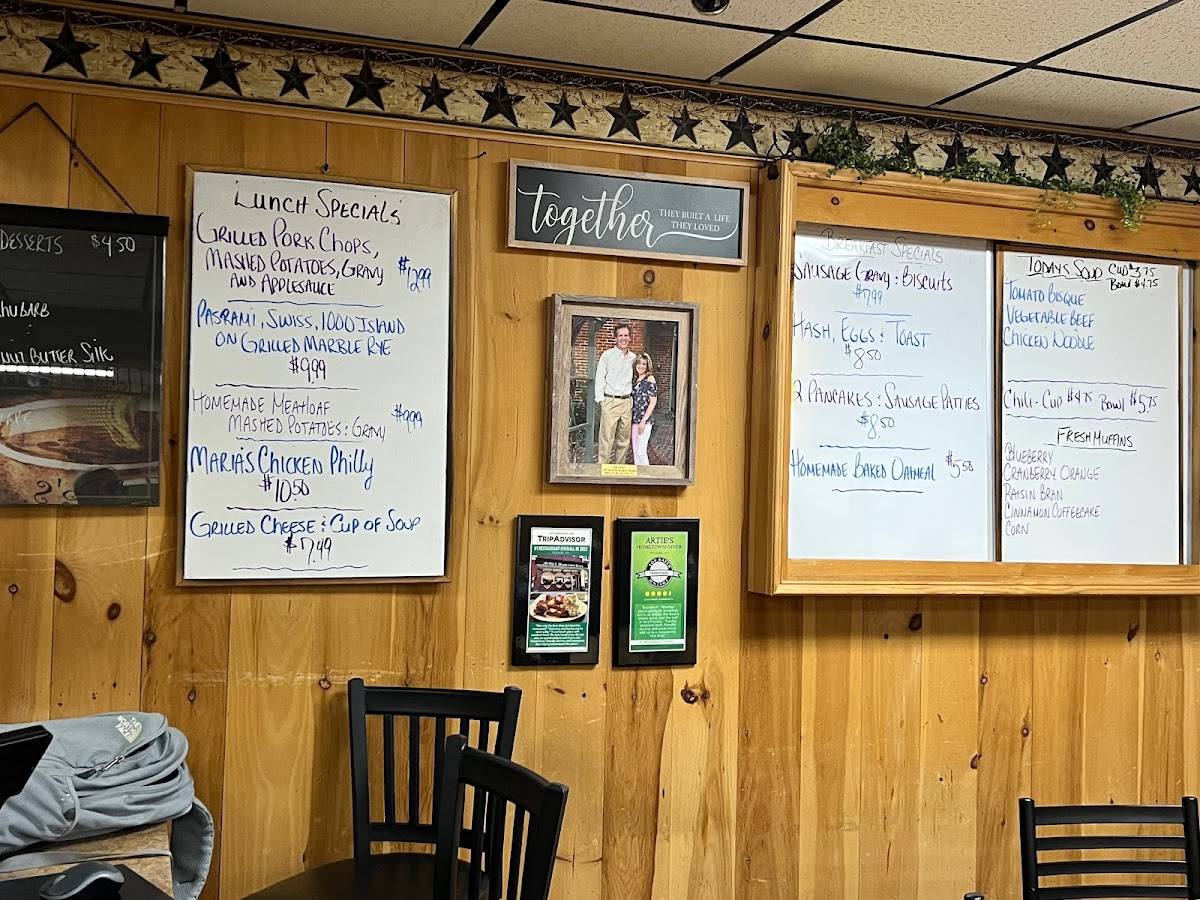 DESSERTS $4.50
RHUBARB
NUT BUTTER SILK
LUNCH SPECIALS
GRILLED PORK CHOPS,
MASHED POTATOES, GRAVY $12.99
AND APPLESAUCE
PASRAMI, SWISS, 1000 ISLAND
ON GRILLED MARBLE RYE
$9.99
HOMEMADE MEATLOAF $9.99
MASHED POTATOES : GRAVY
MARIA'S CHICKEN PHILLY
$10.50
GRILLED CHEESE : CUP OF SOUP
$7.49
together THEY BUILT A LIFE
THEY LOVED
TRIPADVISOR
#1 RESTAURANT OVERALL IN 2022
ARTIE'S
HOMETOWN DINER
BREAKFAST SPECIALS
SAUSAGE GRAVY : BISCUITS
$7.99
HASH, EGGS : TOAST
$8.50
2 PANCAKES : SAUSAGE PATTIES
$8.50
HOMEMADE BAKED OATMEAL $5.50
TODAYS SOUP CUP $3.75
BOWL $4.75
TOMATO BISQUE
VEGETABLE BEEF
CHICKEN NOODLE
CHILI - CUP $4.75 BOWL $5.75
FRESH MUFFINS
BLUEBERRY
CRANBERRY ORANGE
RAISIN BRAN
CINNAMON COFFEECAKE
CORN
THE
NORTH
FACE